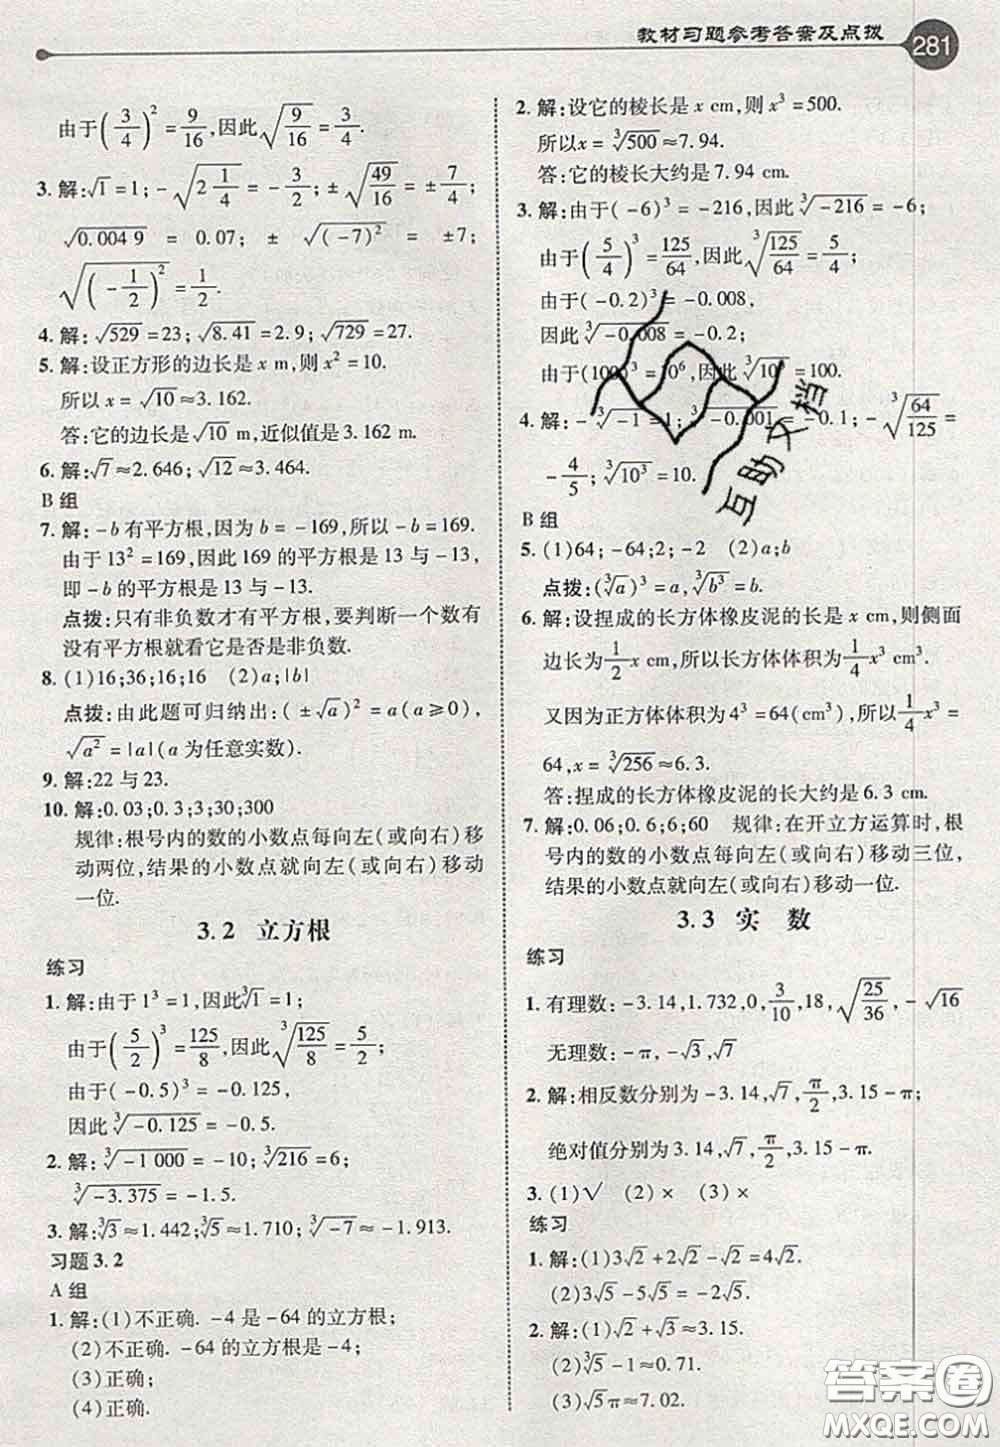 教材习题参考答案及点拨 281
由于(3/4)²=9/16,因此√(9/16)=3/4.
3.解:√1=1;-√(2 1/4)=-3/2;±√(49/16)=±7/4;
√0.0049=0.07;±√(-7)²=±7;
√(-1/2)²=1/2.
4.解:√529=23;√8.41=2.9;√729=27.
5.解:设正方形的边长是x m,则x²=10.
所以x=√10≈3.162.
答:它的边长是√10 m,近似值是3.162 m.
6.解:√7≈2.646;√12≈3.464.
B组
7.解:-b有平方根,因为b=-169,所以-b=169.
由于13²=169,因此169的平方根是13与-13,
即-b的平方根是13与-13.
点拨:只有非负数才有平方根,要判断一个数有
没有平方根就看它是否是非负数.
8.(1)16;36;16;16 (2)a;|b|
点拨:由此题可归纳出:(±√a)²=a(a≥0),
√a²=|a|(a为任意实数).
9.解:22与23.
10.解:0.03;0.3;3;30;300
规律:根号内的数的小数点每向左(或向右)移
动两位,结果的小数点就向左(或向右)移动
一位.
3.2 立方根
练习
1.解:由于1³=1,因此∛1=1;
由于(5/2)³=125/8,因此∛(125/8)=5/2;
由于(-0.5)³=-0.125,
因此∛-0.125=-0.5.
2.解:∛-1000=-10;∛216=6;
∛-3.375=-1.5.
3.解:∛3≈1.442;∛5≈1.710;∛-7≈-1.913.
习题3.2
A组
1.解:(1)不正确.-4是-64的立方根;
(2)不正确.-64的立方根是-4;
(3)正确;
(4)正确.
2.解:设它的棱长是x cm,则x³=500.
所以x=∛500≈7.94.
答:它的棱长大约是7.94 cm.
3.解:由于(-6)³=-216,因此∛-216=-6;
由于(5/4)³=125/64,因此∛(125/64)=5/4;
由于(-0.2)³=-0.008,
因此∛-0.008=-0.2;
由于(100)³=10⁶,因此∛10⁶=100.
4.解:-∛-1=1;∛-0.001=-0.1;-∛(64/125)=
-4/5;∛10³=10.
B组
5.(1)64;-64;2;-2 (2)a;b
点拨:(∛a)³=a,∛b³=b.
6.解:设捏成的长方体橡皮泥的长是x cm,则侧面
边长为1/2x cm,所以长方体体积为1/4x³ cm³.
又因为正方体体积为4³=64(cm³),所以1/4x³=
64,x=∛256≈6.3.
答:捏成的长方体橡皮泥的长大约是6.3 cm.
7.解:0.06;0.6;6;60 规律:在开立方运算时,根
号内的数的小数点每向左(或向右)移动三位,
结果的小数点就向左(或向右)移动一位.
3.3 实数
练习
1.有理数:-3.14,1.732,0,3/10,18,√(25/36),-√16
无理数:-π,-√3,√7
2.解:相反数分别为-3.14,√7,π/2,3.15-π;
绝对值分别为3.14,√7,π/2,3.15-π.
3.(1)√ (2)× (3)×
练习
1.解:(1)3√2+2√2-√2=4√2.
(2)3√5-5√5=-2√5.
2.解:(1)√2+√3≈3.15.
(2)∛5-1≈0.71.
(3)√5π≈7.02.
互助文档
答案圈
MXQE.COM